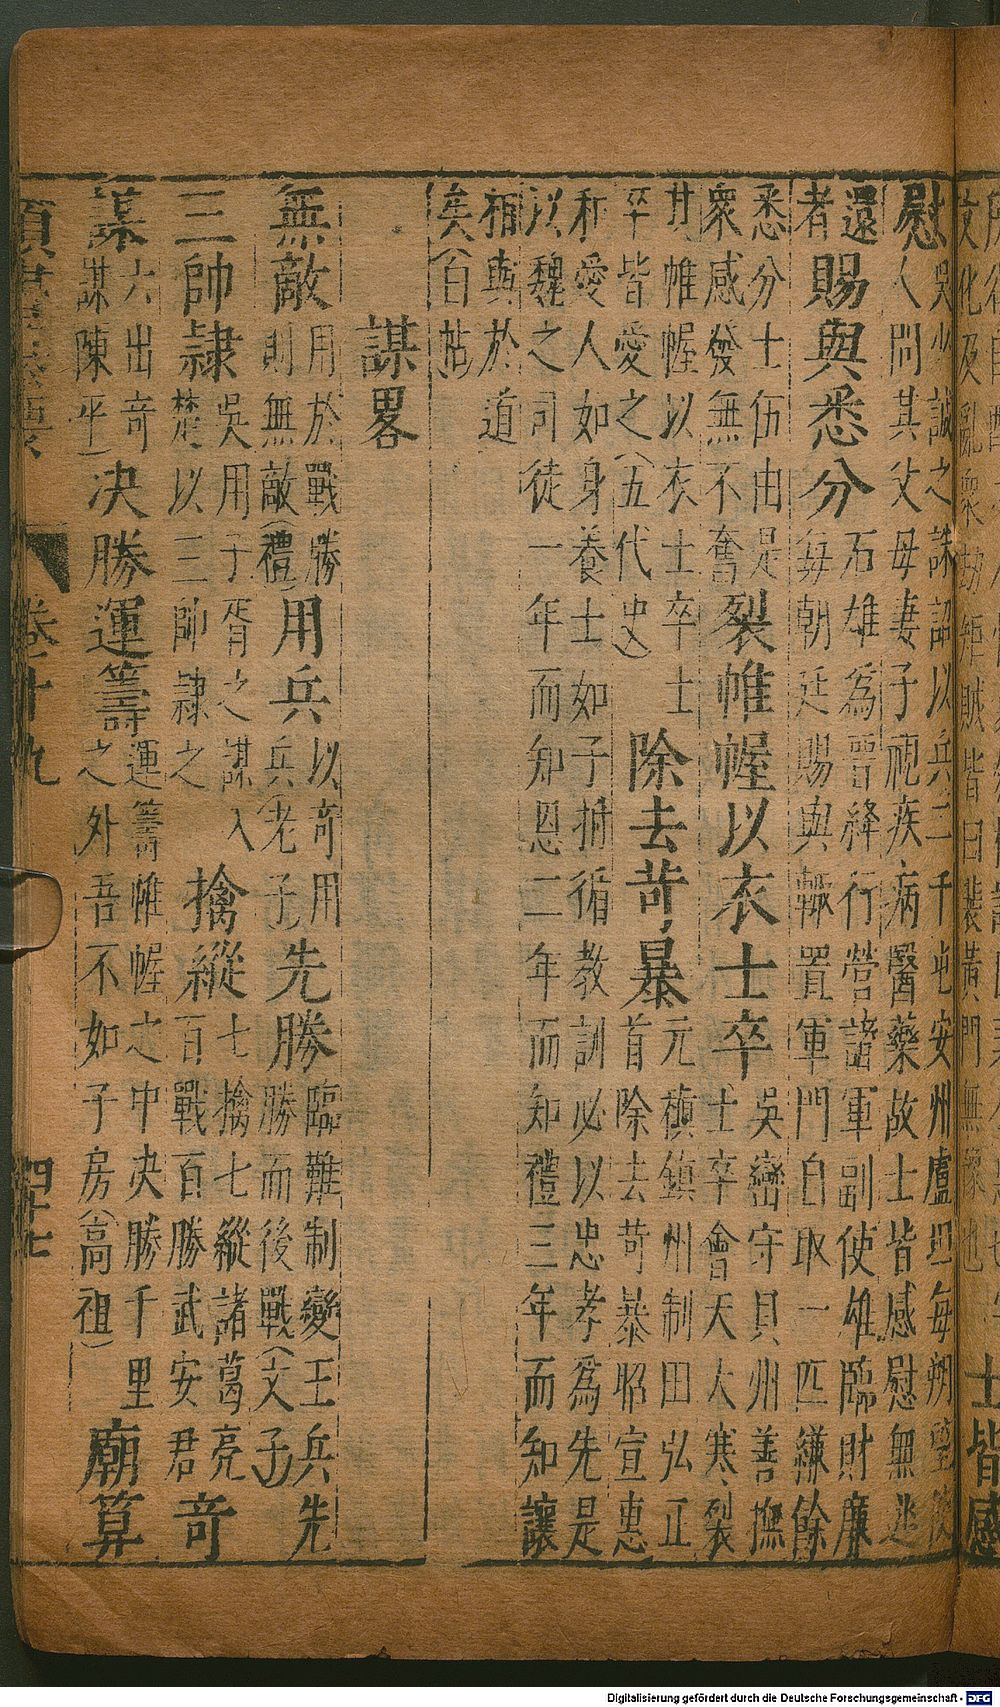 慰
吳少誠之誅詔以兵三千屯安州盧坦每朔望使
人問其父母妻子視疾病醫藥故士皆感慰無逃
還
者
賜與悉分
石雄爲晉絳行營諸軍副使雄臨財廉
每朝廷賜與輙置軍門自取一匹縑餘
悉分士伍由是
衆感發無不奮
裂帷幄以衣士卒
吳巒守貝州善撫
士卒會天大寒裂
其帷幄以衣士卒士
卒皆愛之(五代史)
除去苛暴
元稹鎮州制田弘正
首除去苛暴昭宣惠
和愛人如身養士如子拊循教訓必以忠孝爲先是
以魏之司徒一年而知恩二年而知禮三年而知讓
相與於道
矣(百帖
謀畧
無敵
用於戰勝
則無敵(禮)
用兵
以奇用
兵(老子
先勝
臨難制變王兵先
勝而後戰(文子
三帥隷
吳用子胥之謀入
楚以三帥隷之
擒縱
七擒七縱諸葛亮
百戰百勝武安君
奇
謀
六出奇
謀陳平)
决勝運籌
運籌帷幄之中决勝千里
之外吾不如子房(高祖)
廟算
卷十九
四十七
士皆感
Digitalisierung gefördert durch die Deutsche Forschungsgemeinschaft - DFG